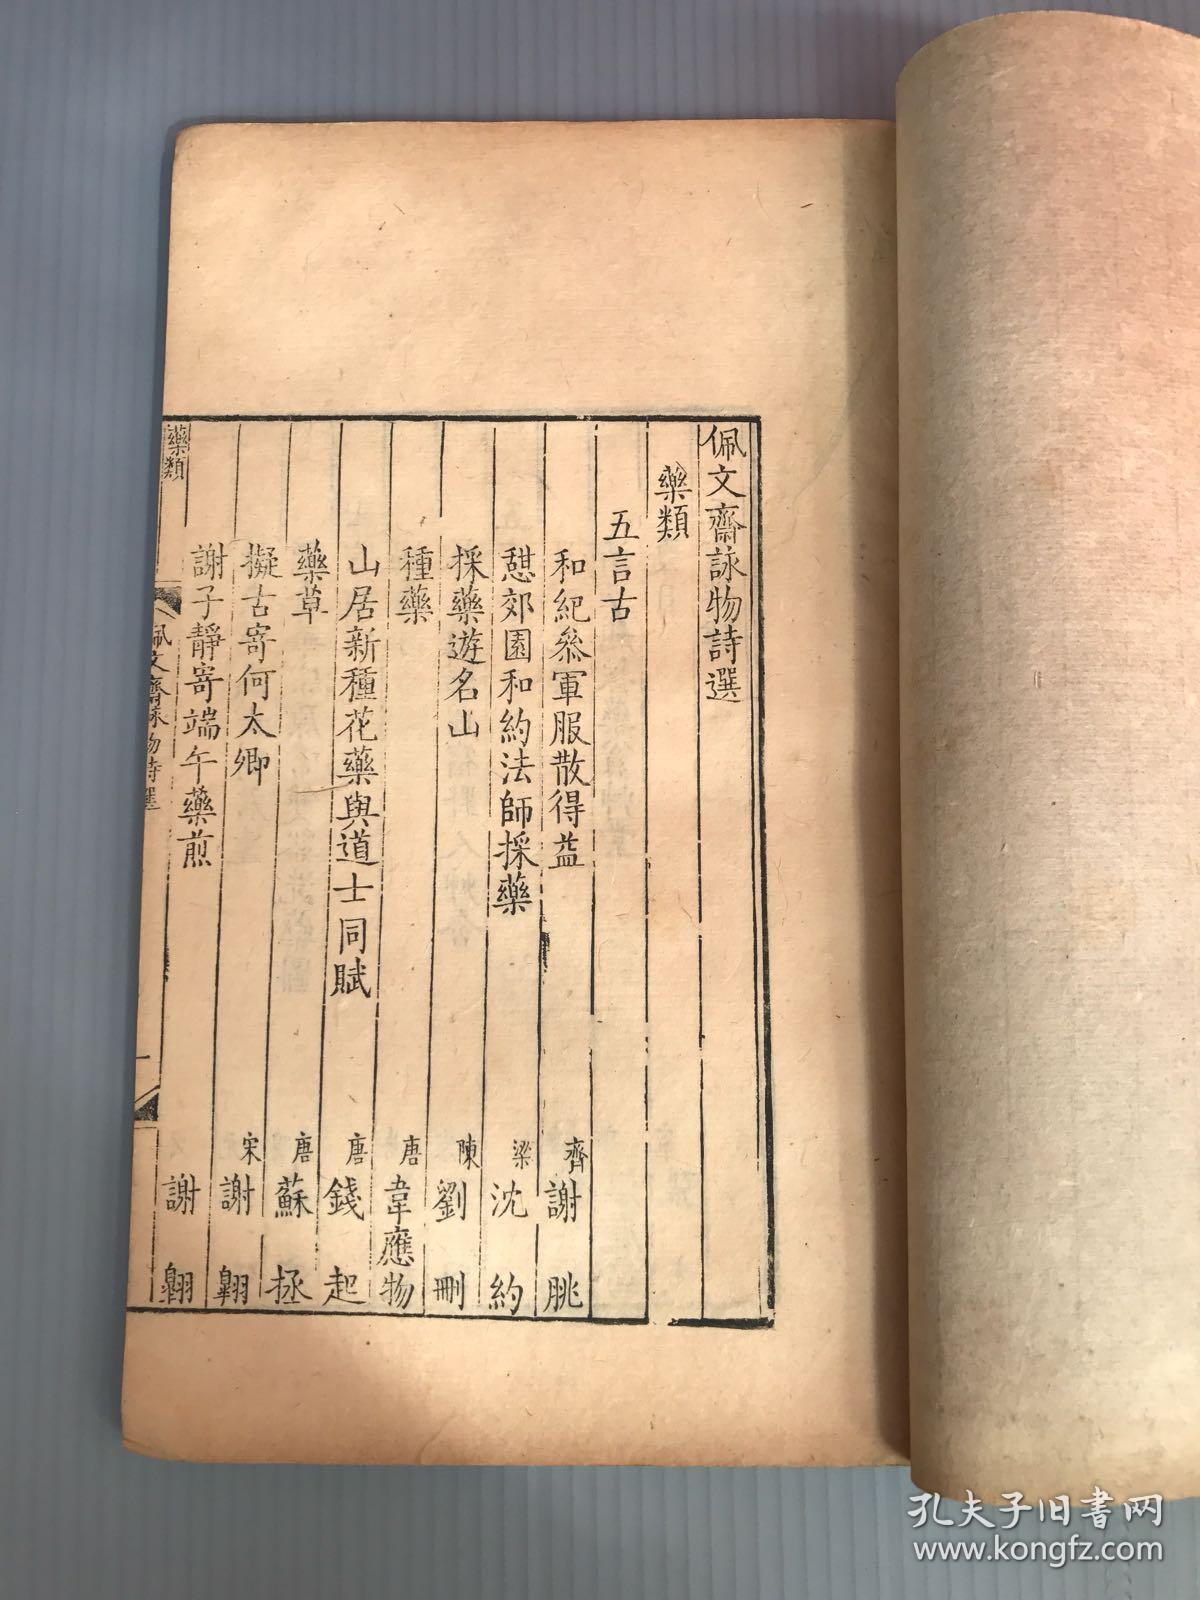 佩文齋詠物詩選
藥類
五言古
和紀叅軍服散得益 齊 謝朓
憇郊園和約法師採藥 梁 沈約
採藥遊名山 陳 劉刪
種藥 唐 韋應物
山居新種花藥與道士同賦 唐 錢起
藥草 唐 蘇拯
擬古寄何太卿 宋 謝翺
謝子靜寄端午藥煎 謝翺
藥類 佩文齋詠物詩選 一
孔夫子旧书网
www.kongfz.com